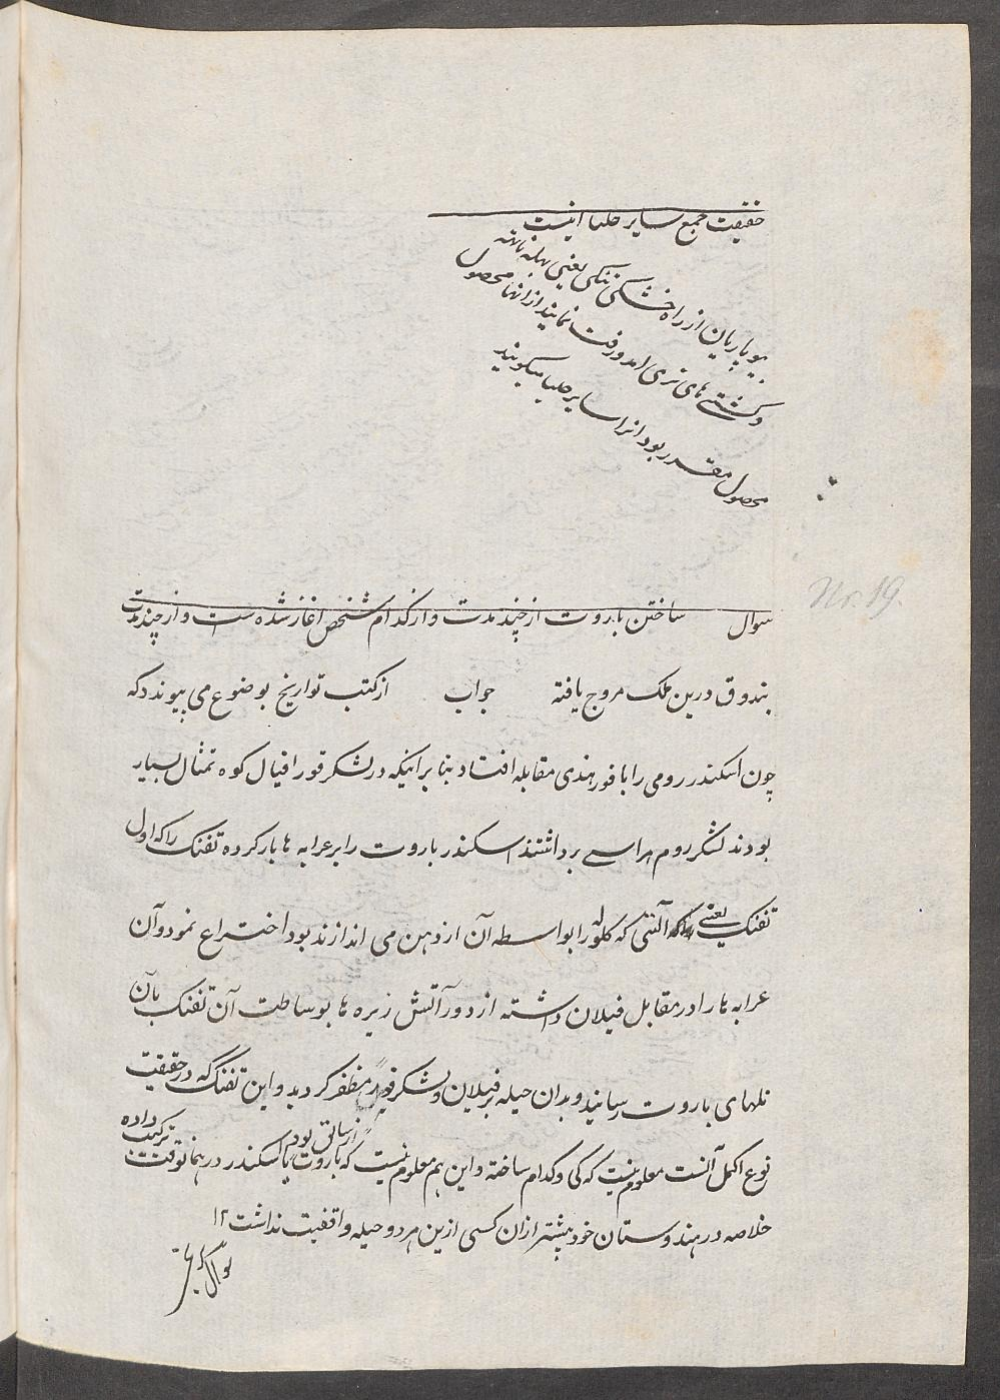 حقیقت جمع سایر جلیا اینست
بیوپاریان از راه خشکی ننکی یعنی بهله ناته
و کشتی های تری امد و رفت نمایند از انها محصول
محصول مقرر بود انرا سایر جلیا میکویند
Nr. 19.
سوال ساختن باروت از چند مدت و از کدام شخص اغاز شده است و از چند مدت
بندوق درین ملک مروج یافته جواب از کتب تواریخ بوضوع می پیوندد که
چون اسکندر رومی را با فور هندی مقابله افتاد بنا بر اینکه در لشکر فور افیال کوه تمثال بسیار
بودند لشکر روم هراسی برداشتند اسکندر باروت را بر عرابه ها بار کرده تفنک را که اول
تفنک یعنی آلتی که کلوله را بواسطه آن از دهن می اندازند بود اختراع نمود و آن
عرابه ها را در مقابل فیلان داشته از دور آتش زیره ها بوساطت آن تفنک بآن
تلهای باروت رسانید و بدان حیله بر فیلان و لشکر فور مظفر کردید و این تفنک که در حقیقت
نوع اکمل آنست معلوم نیست که کی و کدام ساخته و این هم معلوم نیست که باروت از سابق بود یا اسکندر در همانوقت ترکیب داده
خلاصه در هندوستان خود پیشتر از ان کسی ازین هر دو حیله واقفیت نداشت ۱۲